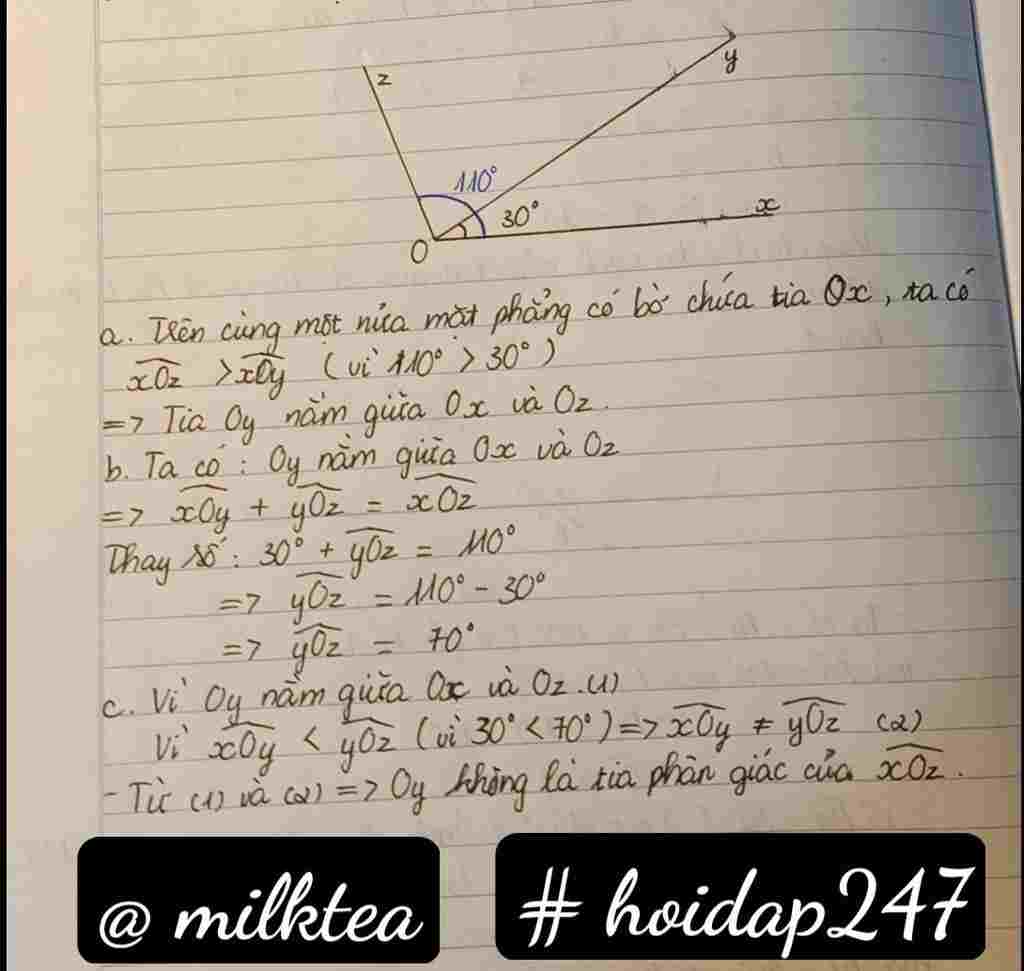 z
y
110°
30°
x
O
a. Trên cùng một nửa mặt phẳng có bờ chứa tia Ox, ta có
xOz > xOy (vì 110° > 30°)
=> Tia Oy nằm giữa Ox và Oz.
b. Ta có: Oy nằm giữa Ox và Oz
=> xOy + yOz = xOz
Thay số: 30° + yOz = 110°
=> yOz = 110° - 30°
=> yOz = 70°
c. Vì Oy nằm giữa Ox và Oz. (1)
Vì xOy < yOz (vì 30° < 70°) => xOy ≠ yOz (2)
- Từ (1) và (2) => Oy không là tia phân giác của xOz.
@ milktea # hoidap247